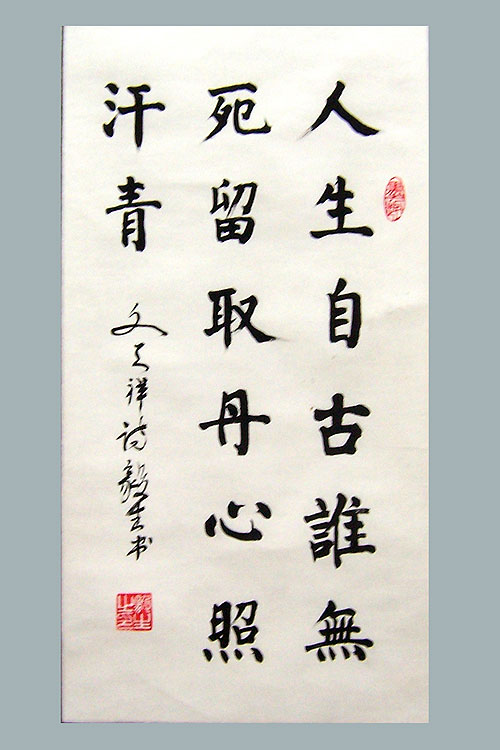 人生自古誰無
死留取丹心照
汗青
文天祥诗毅生书